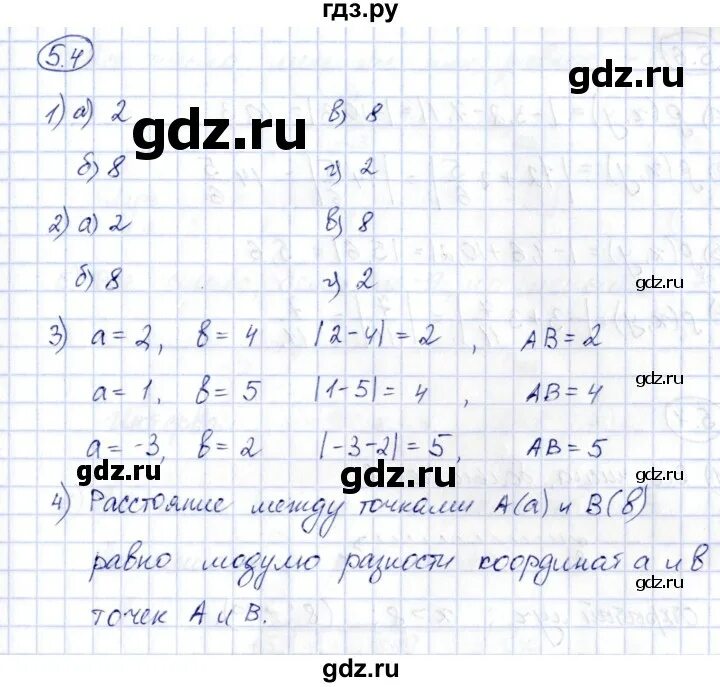 гдз.ру
5.4
gdz.ru
1) а) 2 в) 8
gdz.ru
б) 8 г) 2
2) а) 2 в) 8
б) 8 г) 2
gdz.ru
3) a = 2, b = 4 |2-4| = 2, AB = 2
gdz.ru
a = 1, b = 5 |1-5| = 4, AB = 4
a = -3, b = 2 |-3-2| = 5, AB = 5
gdz.ru gdz.ru
4) Расстояние между точками A(a) и B(b)
равно модулю разности координат a и b
точек A и B.
gdz.ru
gdz.ru